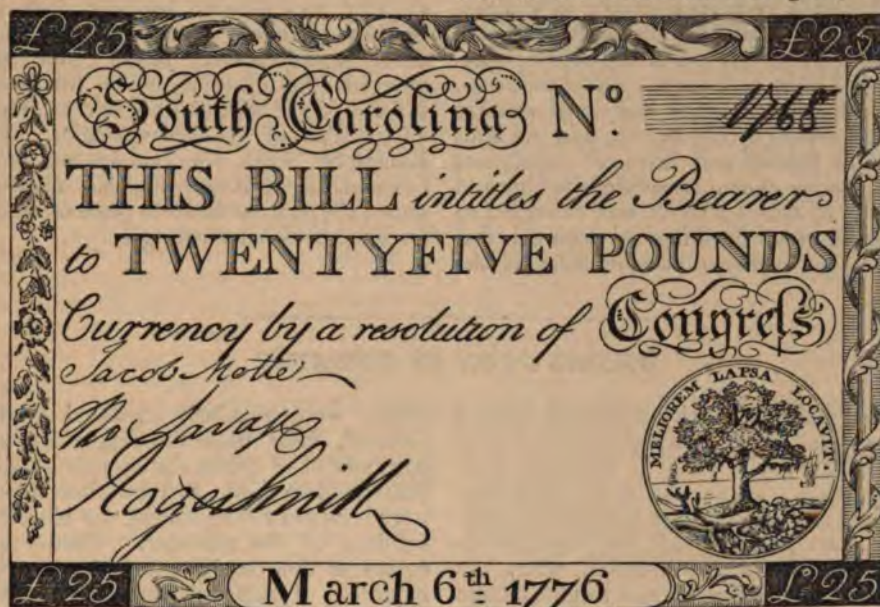 £25 £25
South Carolina No. 1768
THIS BILL intitles the Bearer
to TWENTYFIVE POUNDS
Currency by a resolution of Congreſs
Jacob Motte
Tho Savage
Roger Smith
MELIOREM LAPSA LOCAVIT.
£25 March 6th 1776 £25